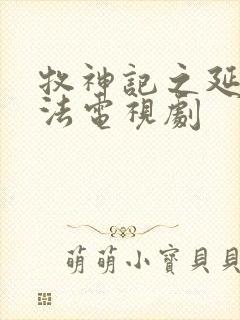 牧神記之延
法電視劇
萌萌小寶貝貝